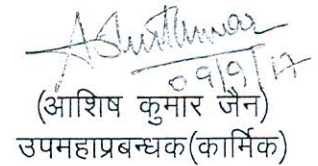 09/9/17
(आशिष कुमार जैन)
उपमहाप्रबन्धक(कार्मिक)